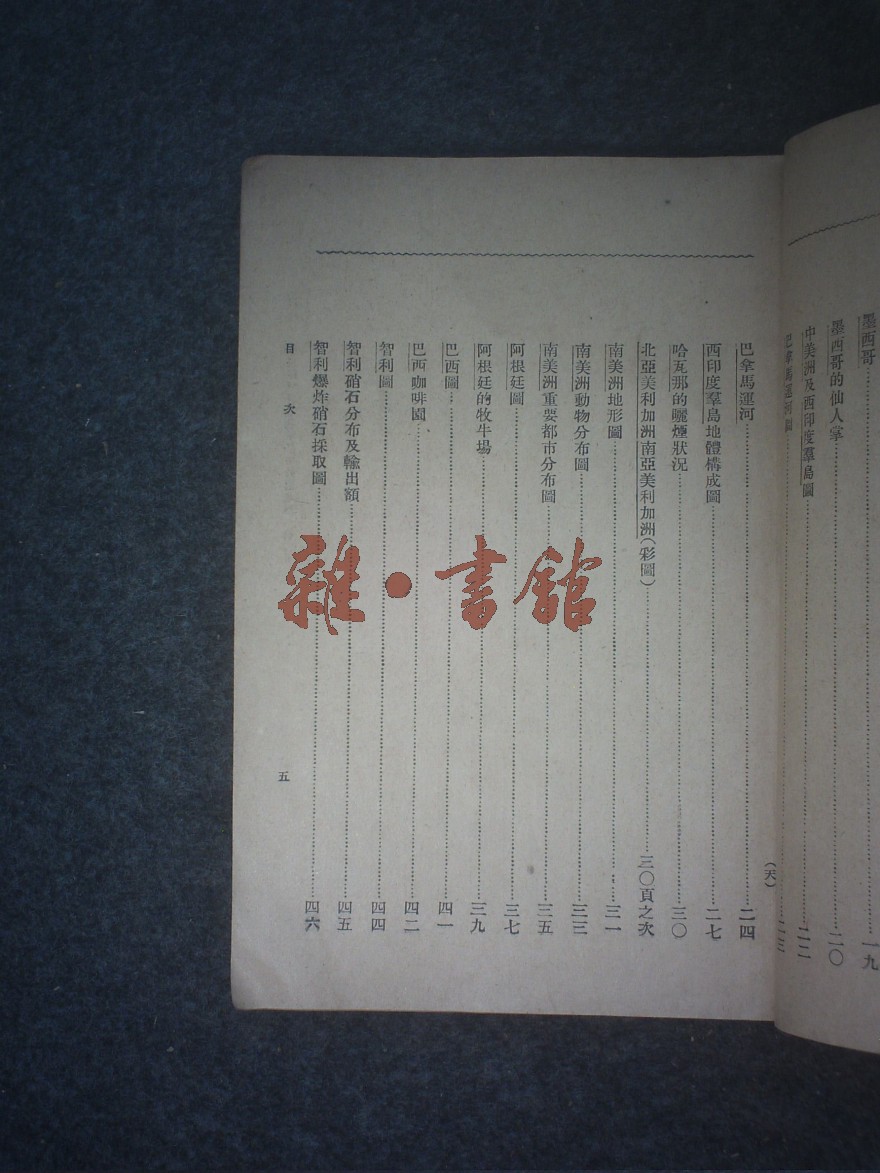 墨西哥……一九
墨西哥的仙人掌……二〇
中美洲及西印度羣島圖……二二
巴拿馬運河圖……二三
(天)
巴拿馬運河……二四
西印度羣島地體構成圖……二七
哈瓦那的曬煙狀況……三〇
北亞美利加洲南亞美利加洲(彩圖)……三〇頁之次
南美洲地形圖……三一
南美洲動物分布圖……三三
南美洲重要都市分布圖……三五
阿根廷圖……三七
阿根廷的牧牛場……三九
巴西圖……四一
巴西咖啡園……四二
智利圖……四四
智利硝石分布及輸出額……四五
智利爆炸硝石採取圖……四六
目次
五
雜·書館